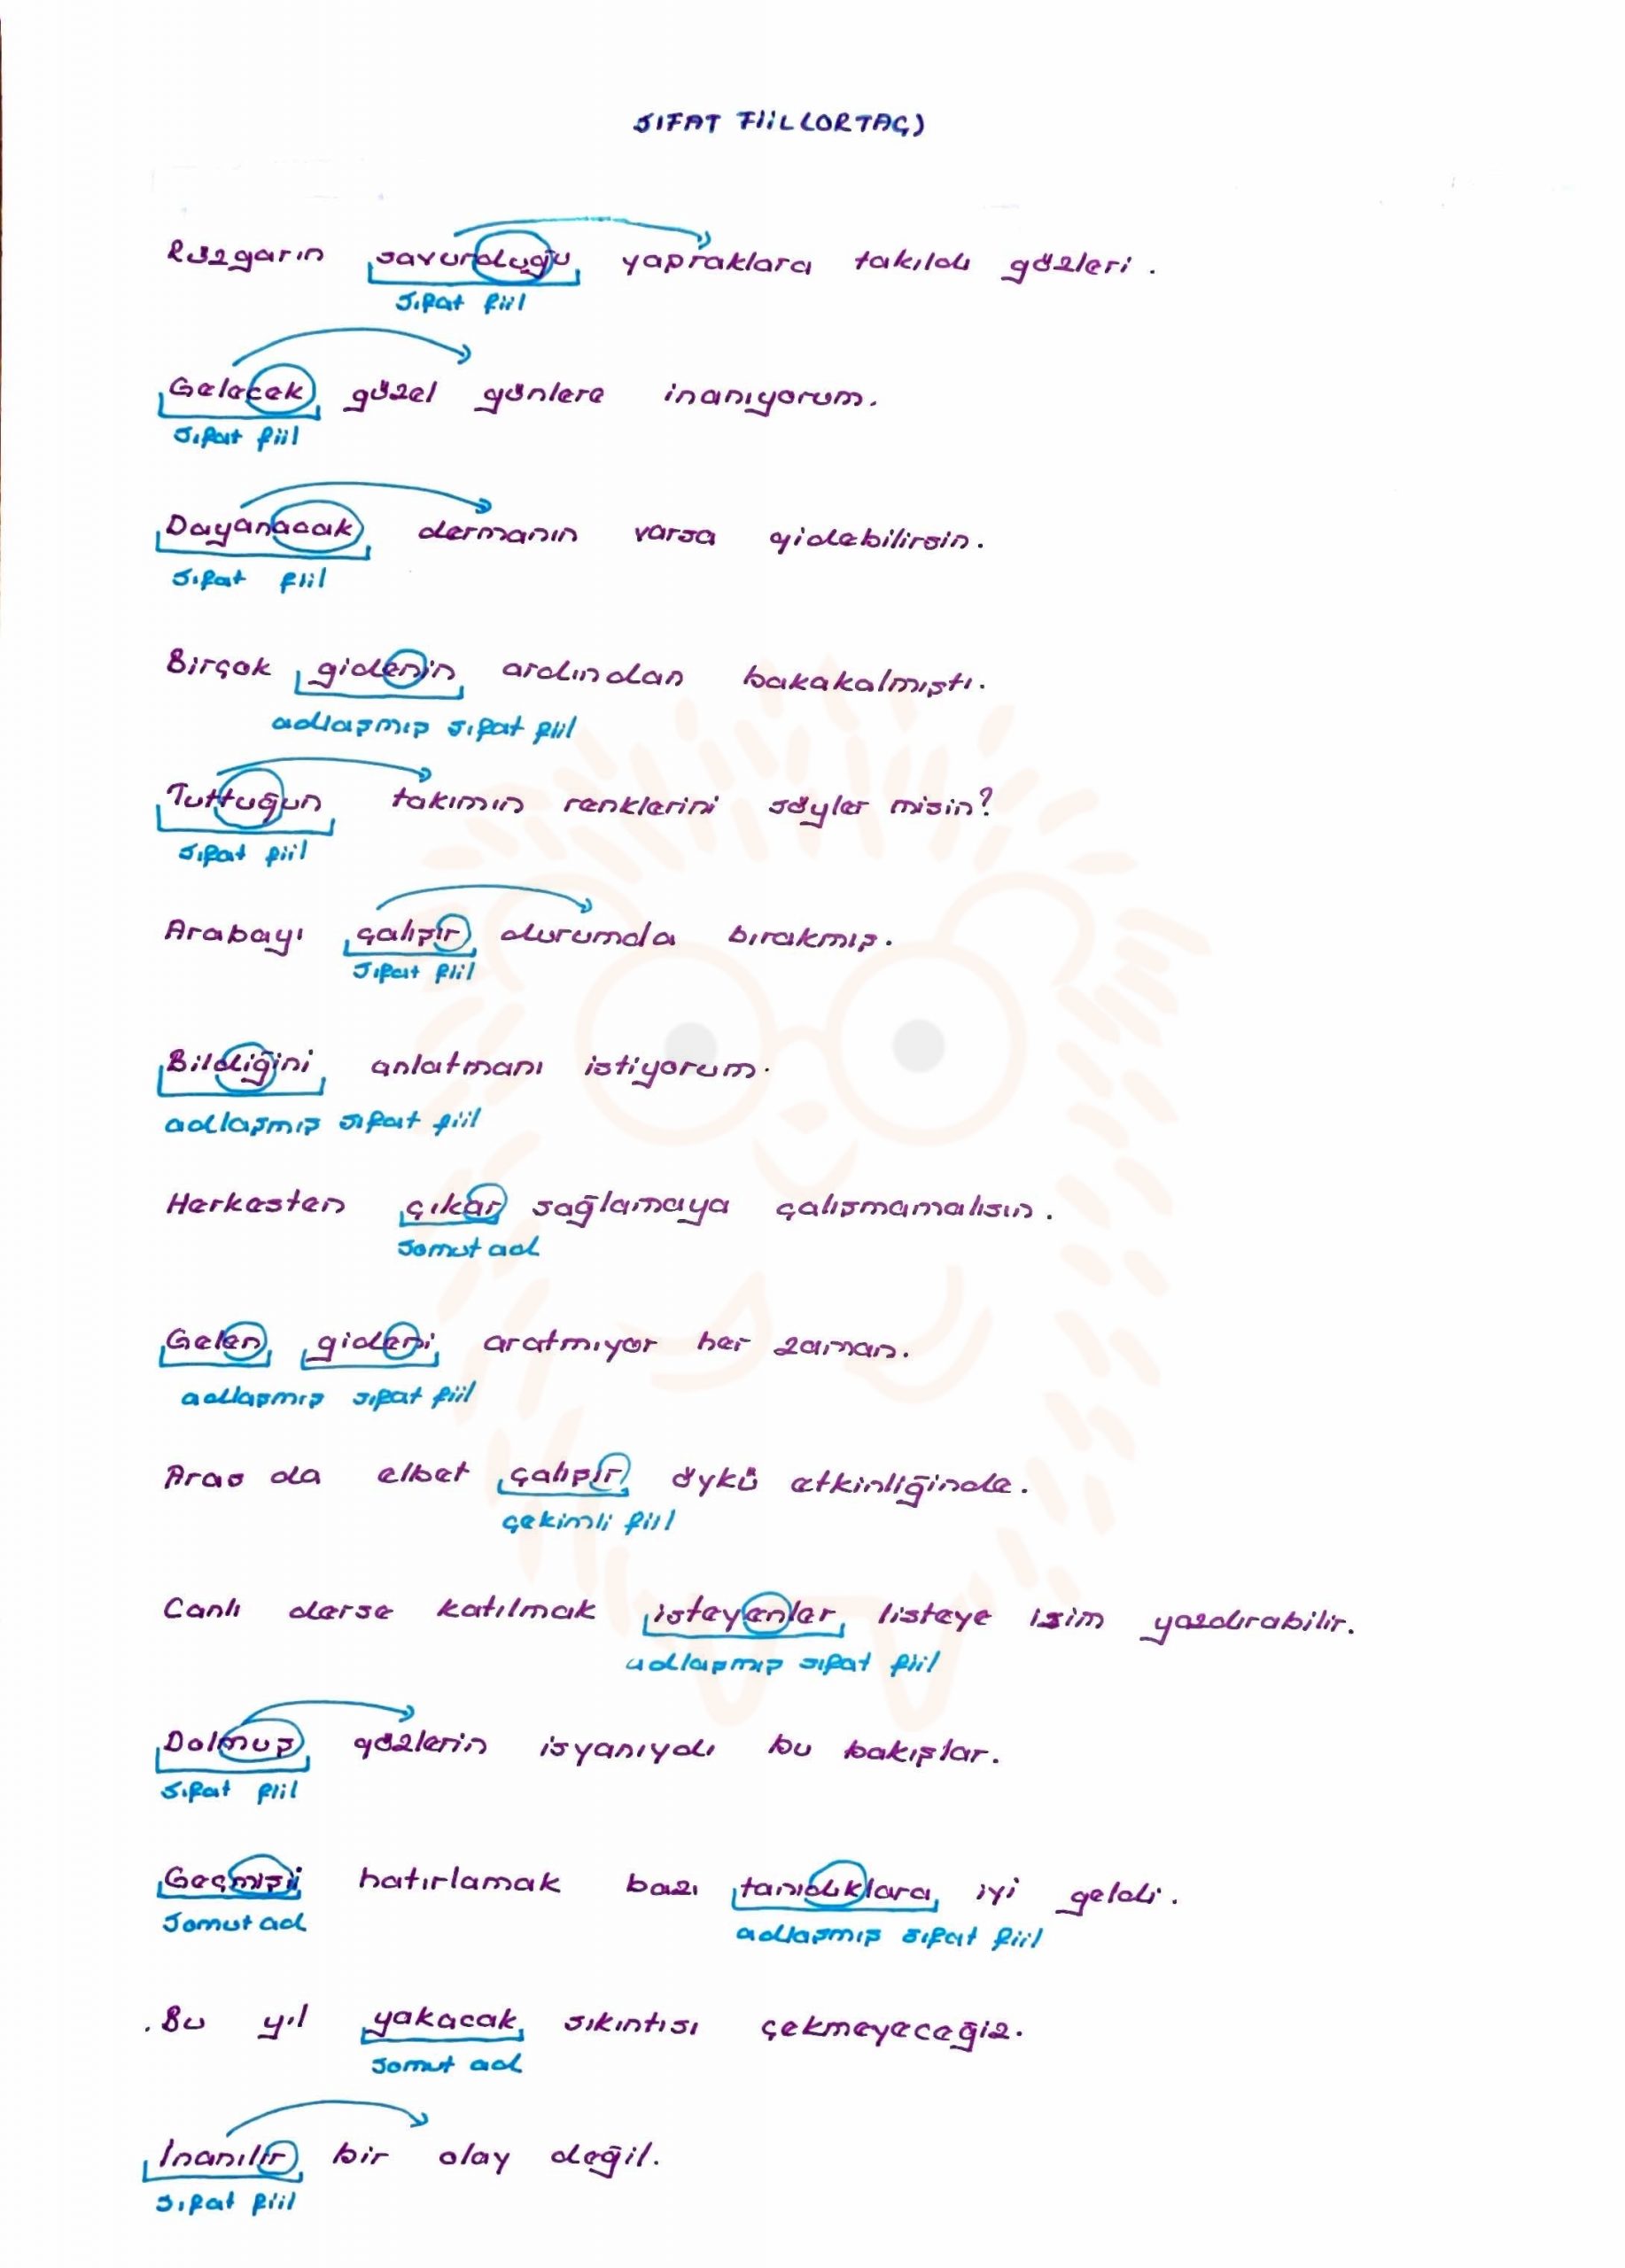 SIFAT FİİL (ORTAÇ)
Rüzgarın savurduğu yapraklara takıldı gözleri.
Sıfat fiil
Gelecek güzel günlere inanıyorum.
Sıfat fiil
Dayanacak dermanın varsa gidebilirsin.
Sıfat fiil
Birçok gidenin ardından bakakalmıştı.
adlaşmış sıfat fiil
Tuttuğun takımın renklerini söyler misin?
Sıfat fiil
Arabayı çalışır durumda bırakmış.
Sıfat fiil
Bildiğini anlatmanı istiyorum.
adlaşmış sıfat fiil
Herkesten çıkar sağlamaya çalışmamalısın.
Somut ad
Gelen gideni aratmıyor her zaman.
adlaşmış sıfat fiil
Aras da elbet çalışır öykü etkinliğinde.
çekimli fiil
Canlı derse katılmak isteyenler listeye isim yazdırabilir.
adlaşmış sıfat fiil
Dolmuş gözlerin isyanıydı bu bakışlar.
Sıfat fiil
Geçmişi hatırlamak bazı tanıdıklara iyi geldi.
Somut ad adlaşmış sıfat fiil
.Bu yıl yakacak sıkıntısı çekmeyeceğiz.
Somut ad
İnanılır bir olay değil.
Sıfat fiil